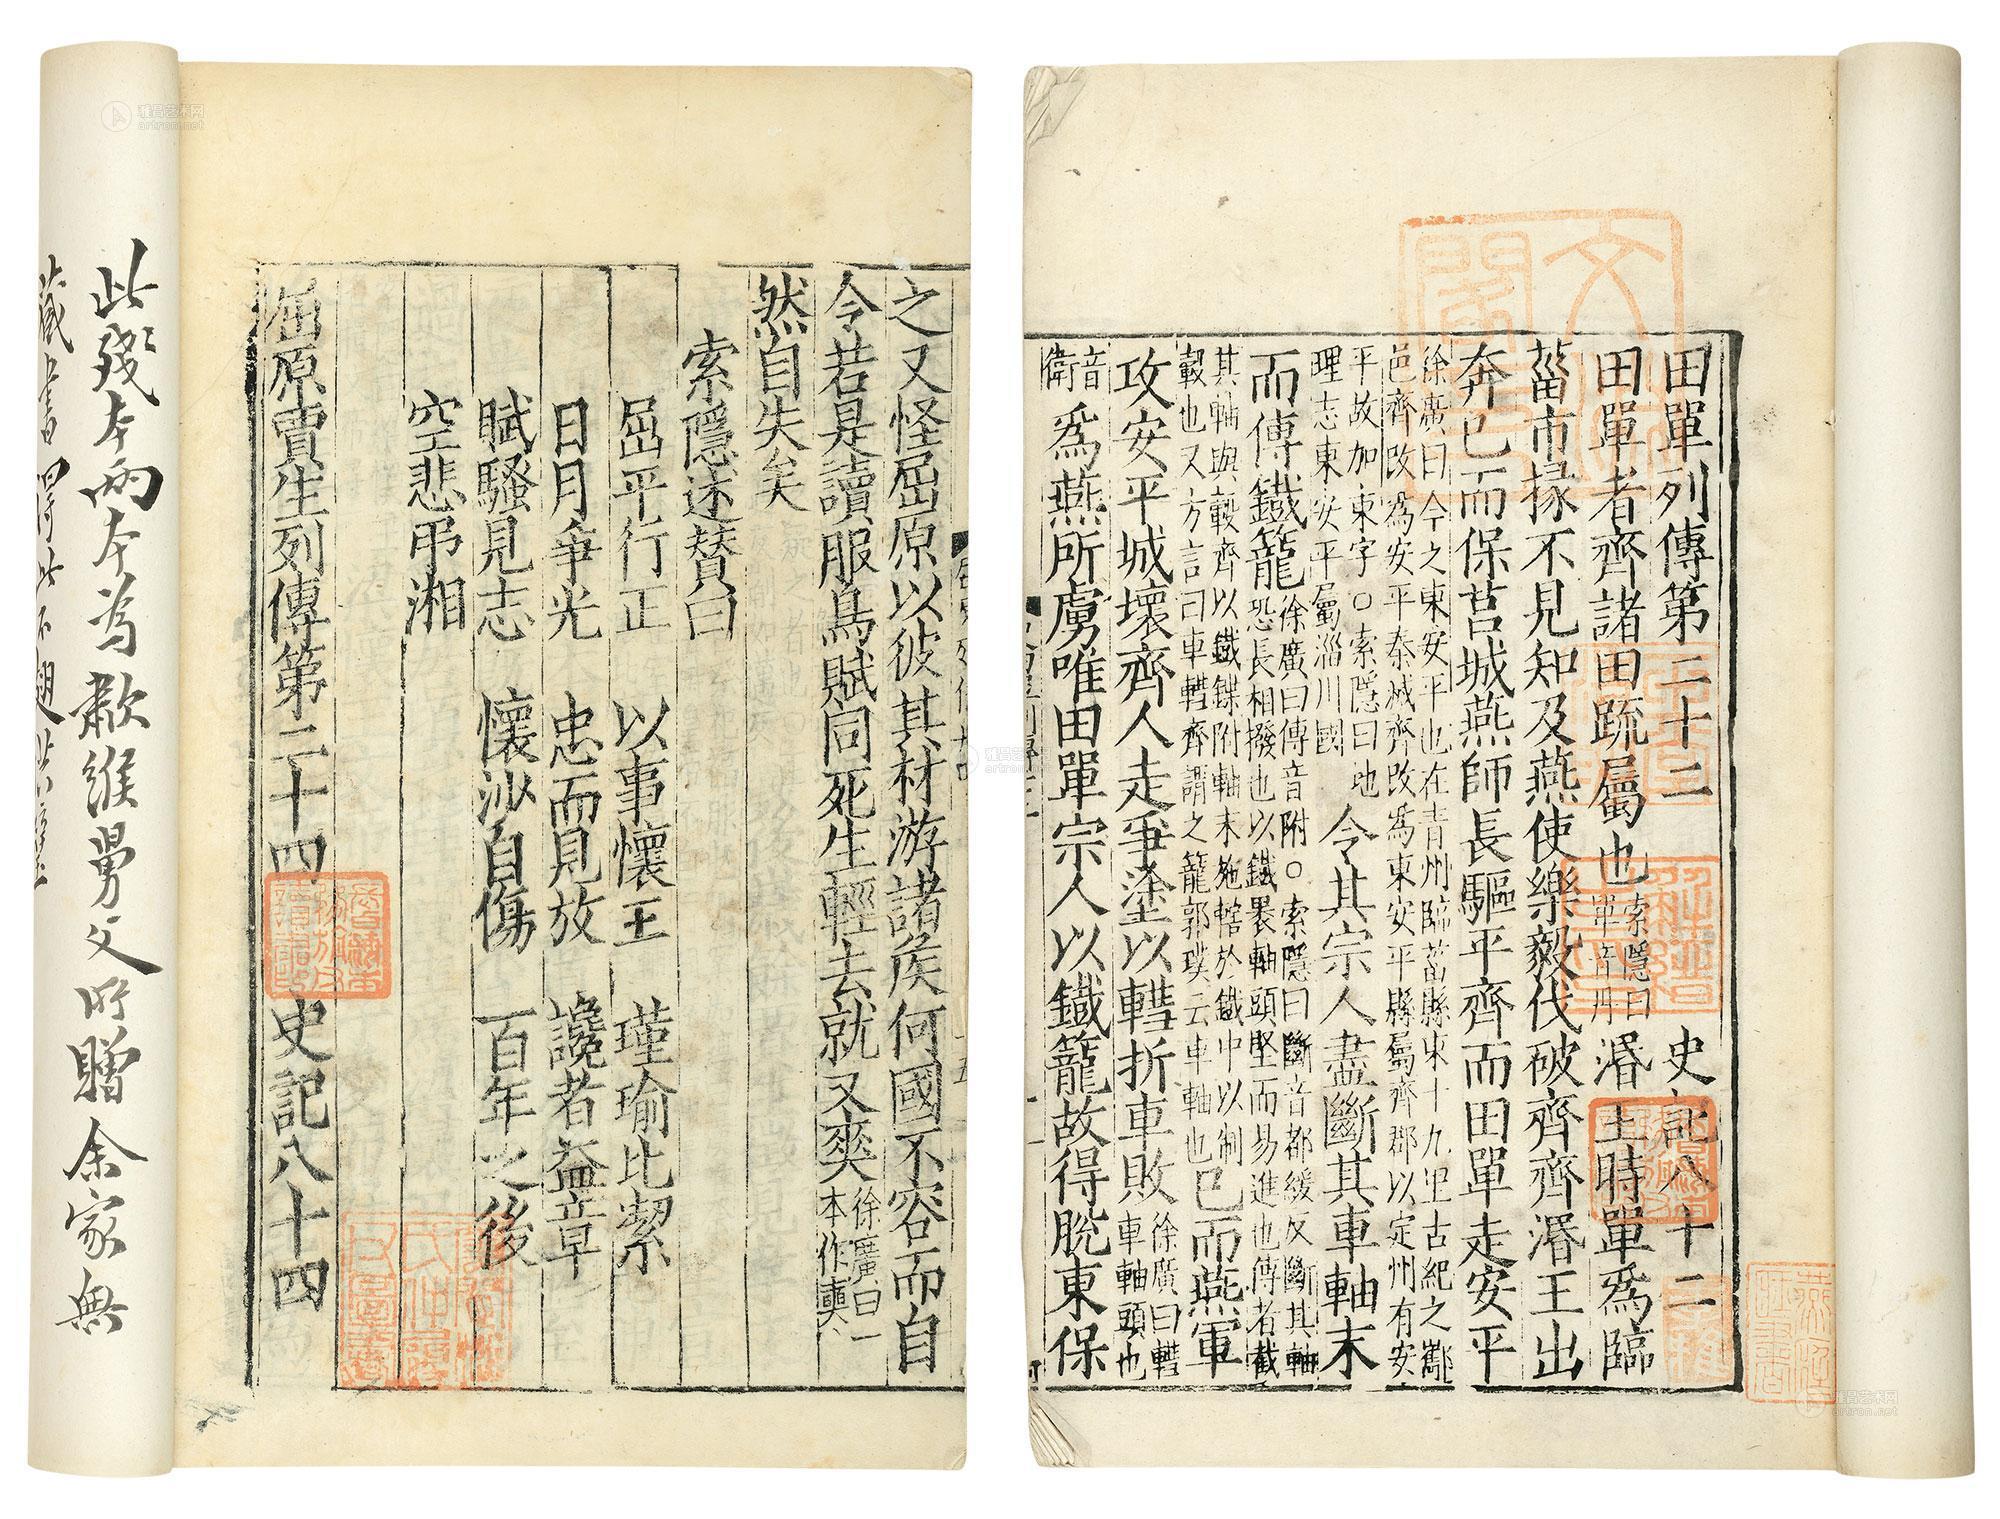 田單列傳第二十二 史記八十二
田單者齊諸田疏屬也索隱曰單音丹湣王時單爲臨
菑市掾不見知及燕使樂毅伐破齊齊湣王出
奔已而保莒城燕師長驅平齊而田單走安平
徐廣曰今之東安平也在青州臨菑縣東十九里古紀之酅
邑齊改爲安平秦滅齊改爲東安平縣屬齊郡以定州有安
平故加東字○索隱曰地
理志東安平屬淄川國
令其宗人盡斷其車軸末
而傅鐵籠
徐廣曰傅音附○索隱曰斷音都緩反斷其軸
恐長相撥也以鐵裹軸頭堅而易進也傅者截
其軸與轂齊以鐵鍱附軸末施轄於鐵中以制
轂也又方言曰車轊齊謂之籠郭璞云車軸也
已而燕軍
攻安平城壞齊人走爭塗以轊折車敗
徐廣曰轊
車軸頭也
音
衛
爲燕所虜唯田單宗人以鐵籠故得脫東保
之又怪屈原以彼其材游諸侯何國不容而自
令若是讀服鳥賦同死生輕去就又爽
徐廣曰一
本作奭
然自失矣
索隱述贊曰
屈平行正 以事懷王 瑾瑜比潔
日月爭光 忠而見放 讒者益章
賦騷見志 懷沙自傷 百年之後
空悲弔湘
屈原賈生列傳第二十四 史記八十四
此殘本兩本爲歙維舅父所贈余家無
藏書得此不翅
雅昌艺术网
artron.net